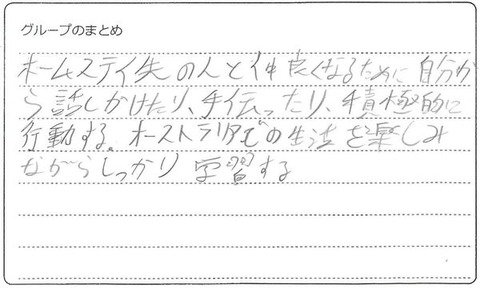 グループのまとめ
ホームステイ先の人と仲良くなるために自分か
ら話しかけたり、手伝ったり、積極的に
行動する。オーストラリアでの生活を楽しみ
ながらしっかり学習する